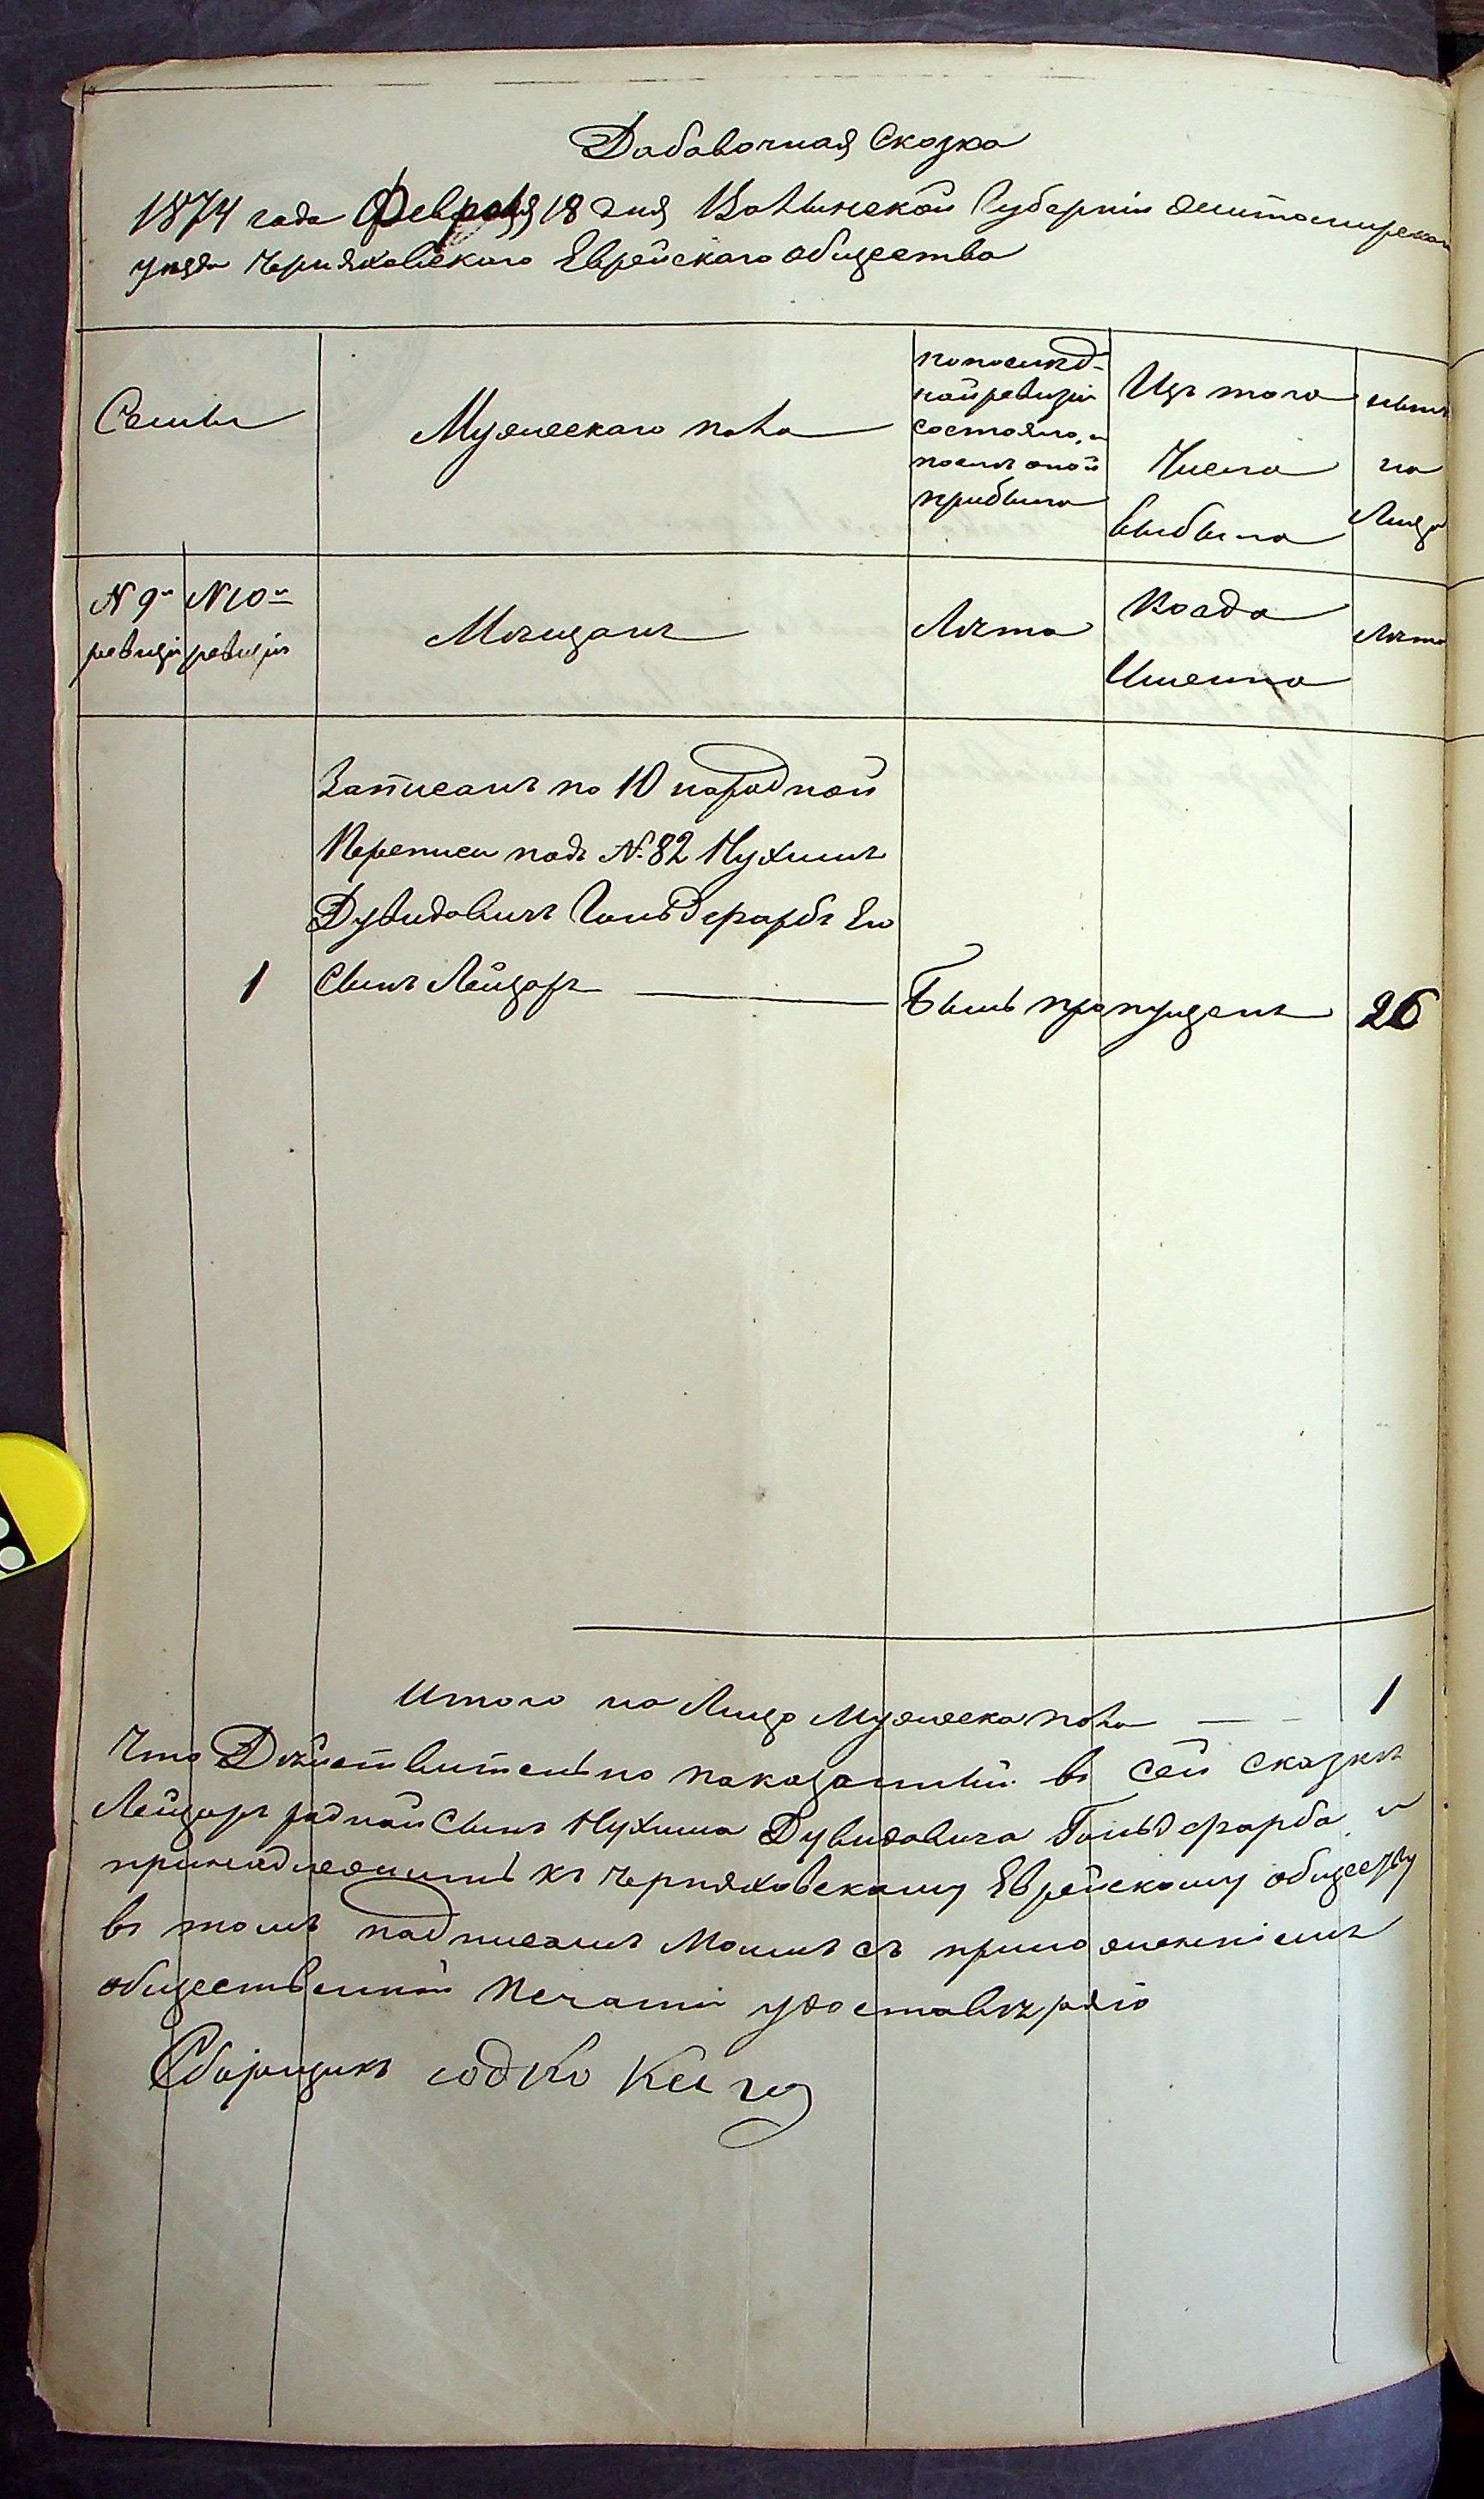 Добавочная Сказка
1874 года Февраля 18 дня Волынской Губерніи Житомирскаго
уѣзда Черняховского Еврейскаго общества
Семьи
Мужескаго пола
по послѣд-
ней ревизіи
состояло, и
послѣ оной
прибыло
Изъ того
Числа
выбыло
нынѣ
на
Лицо
N 9й N 10й
ревизіи ревизіи
Мѣщанъ
Лѣта
Когда
Именно
Лѣта
Записанъ по 10 народной
Переписи подъ № 82 Нухимъ
Дувидовичъ Гольдфарбъ Его
1 Сынъ Лейзоръ Былъ пропущенъ 26
Итого на Лицо Мужеска пола 1
Что Дѣйствительно показанный въ сей сказкѣ
Лейзоръ родной Сынъ Нухима Дувидовича Гольдфарба и
принадлежитъ къ Черняховскому Еврейскому обществу
въ томъ подписомъ Моимъ съ приложеніемъ
общественной Печати удостовѣряю
Сборщикъ Юдко